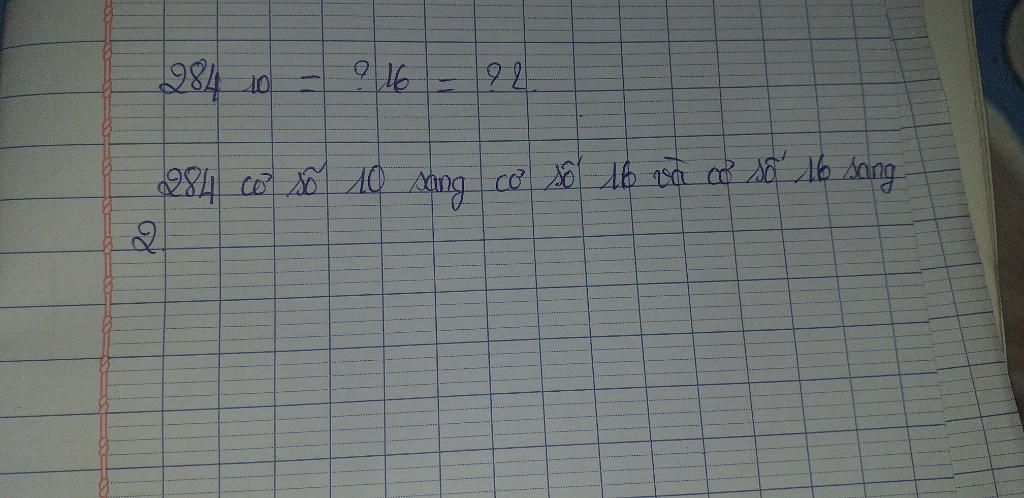 284 10 = ? 16 = ? 2
284 cơ số 10 sang cơ số 16 và cơ số 16 sang
2